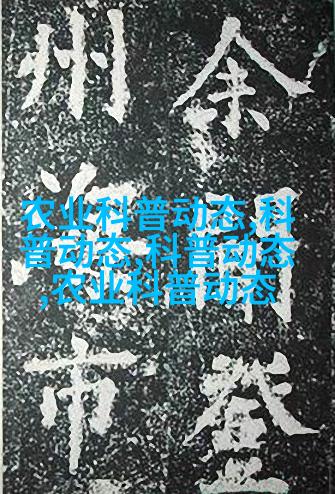 余聞登
州海市
农业科普动态,科
普动态,科普动态
,农业科普动态